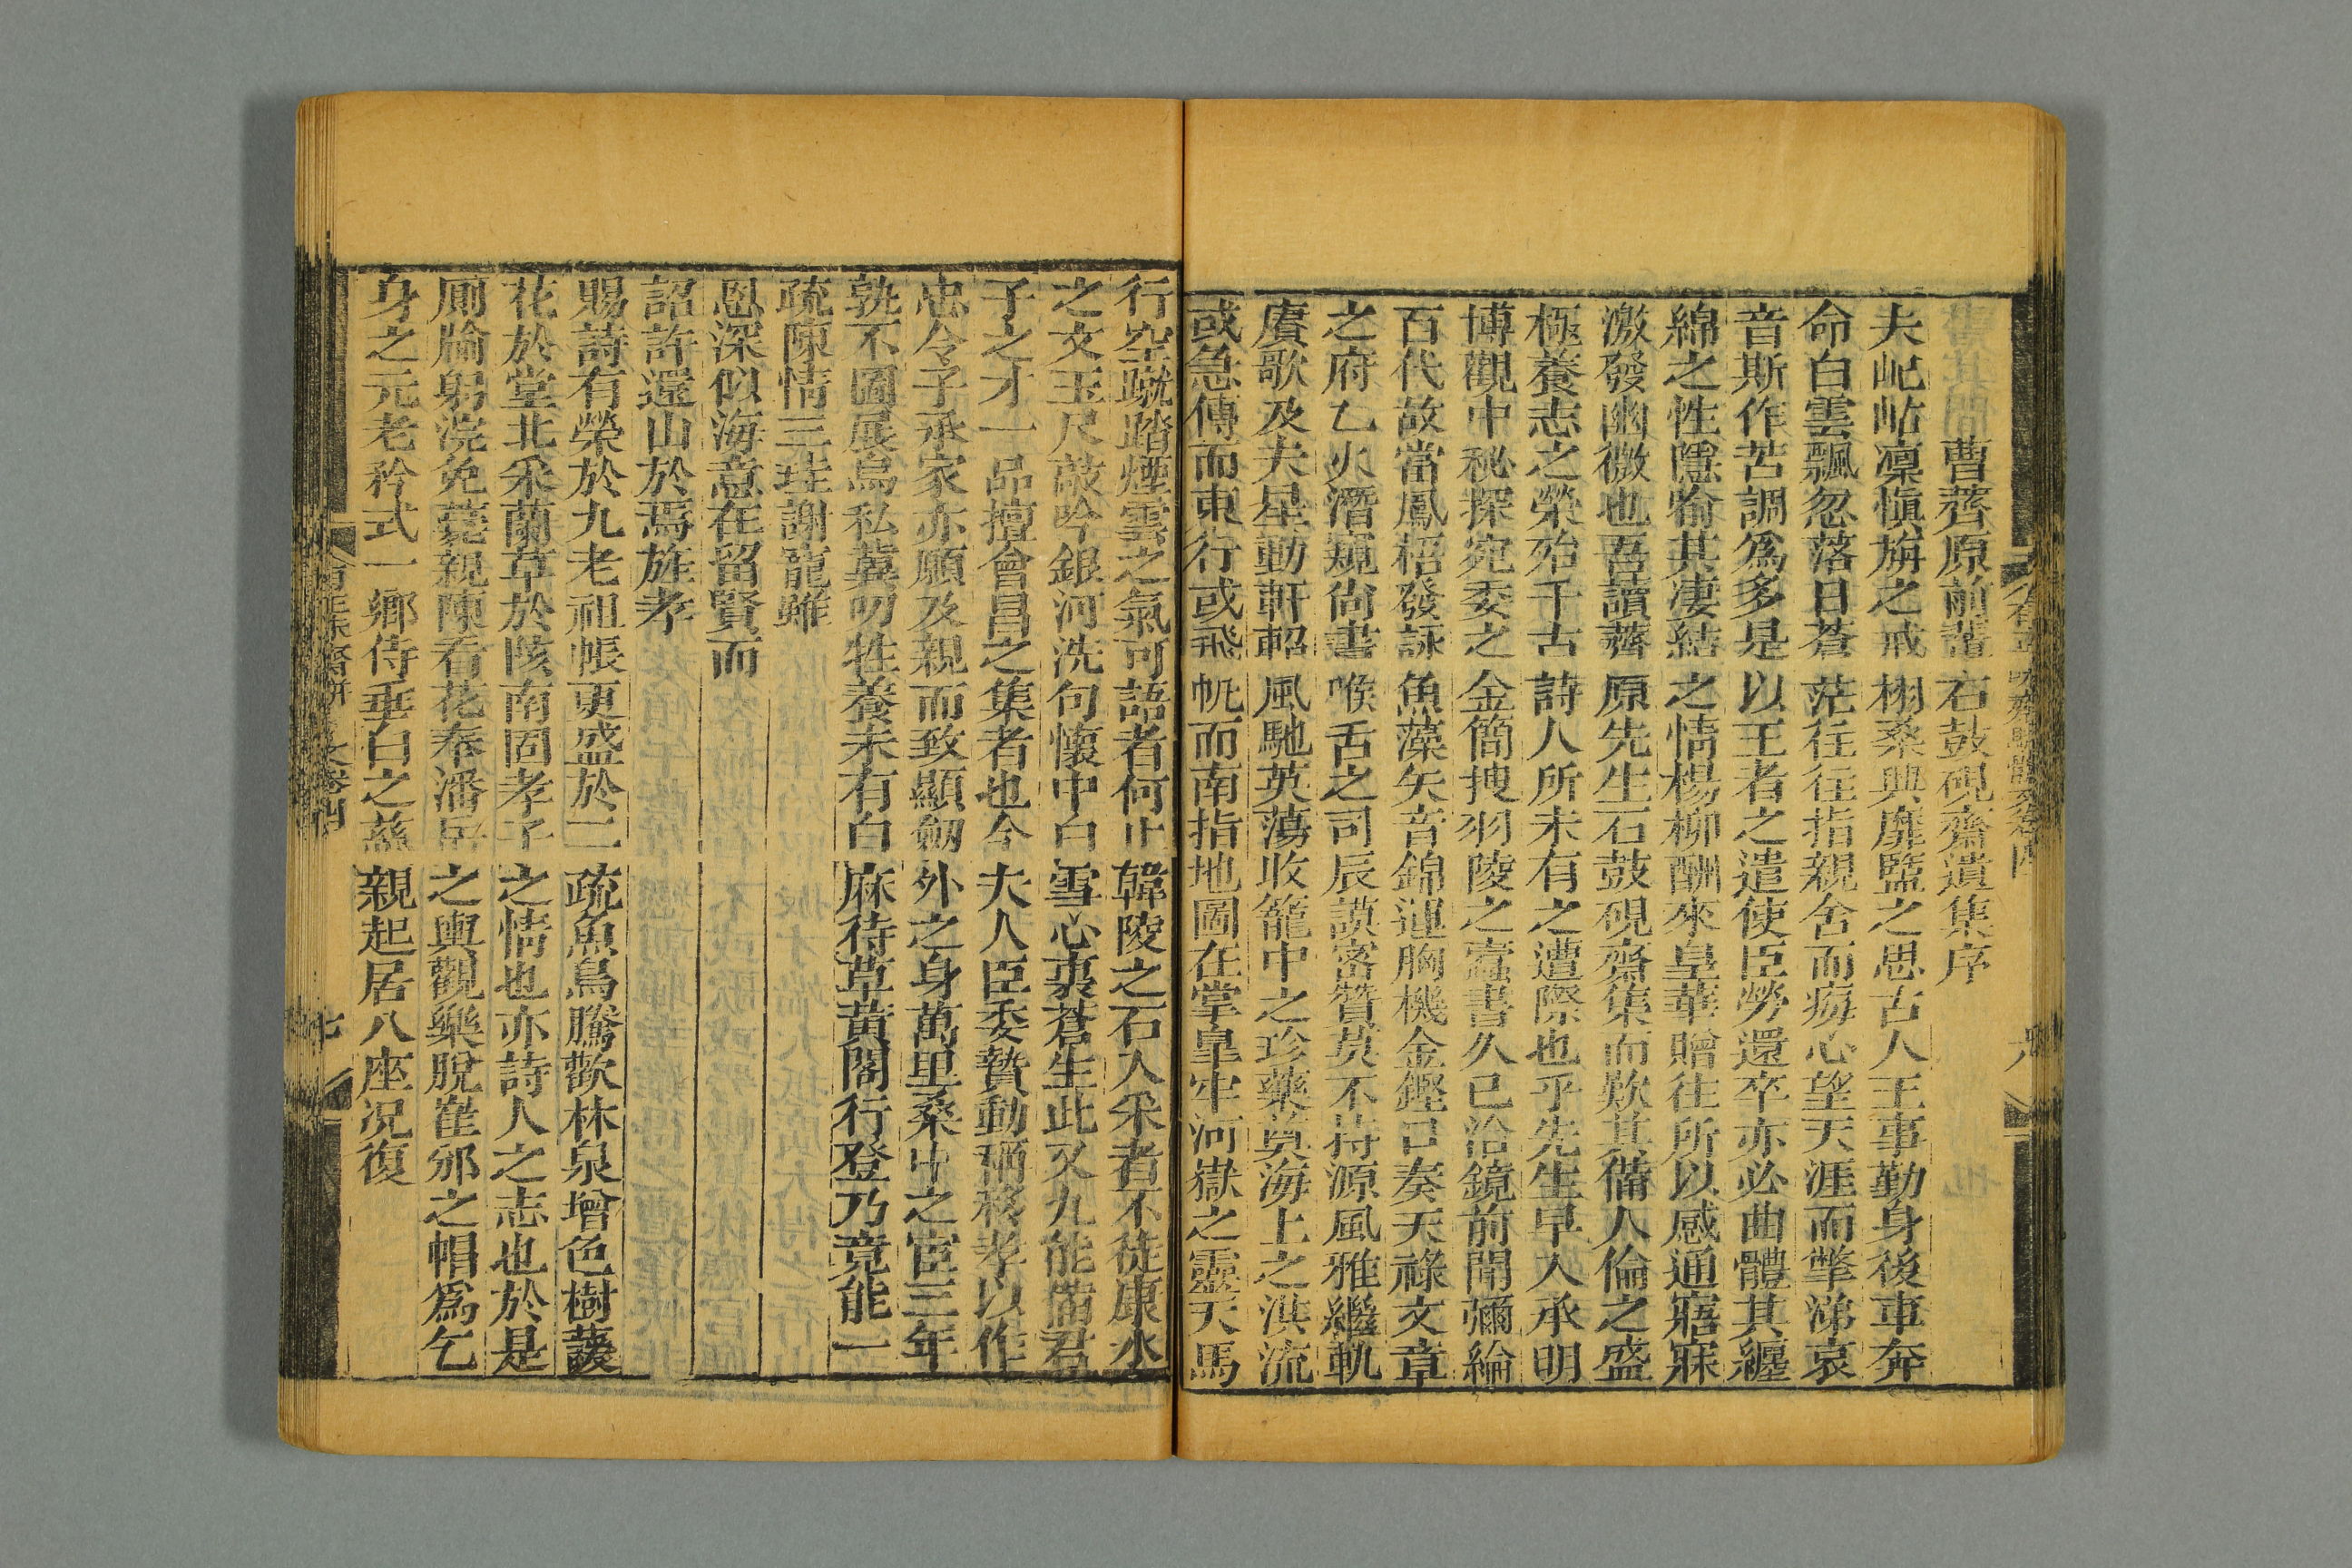 曹薺原前輩石鼓硯齋遺集序
夫屺岵凜愼旃之戒栩桑興靡盬之思古人王事勤身後車奔
命白雲飄忽落日蒼茫往往指親舍而痗心望天涯而掣涕哀
音斯作苦調爲多是以王者之遣使臣勞還卒亦必曲體其纏
綿之性隱喻其凄結之情楊柳酬來皇華贈往所以感通寤寐
激發幽微也吾讀薺原先生石鼓硯齋集而歎其備人倫之盛
極養志之榮殆千古詩人所未有之遭際也乎先生早入承明
博觀中秘探宛委之金簡搜羽陵之蠹書久已洽鏡前聞彌綸
百代故當鳳梧發詠魚藻矢音錦運胸機金鏗口奏天祿文章
之府乙火潛窺尙書喉舌之司辰謨密贊莫不持源風雅繼軌
賡歌及夫星動軒軺風馳英蕩收籠中之珍藥奠海上之洪流
或急傳而東行或飛帆而南指地圖在掌皐牢河嶽之靈天馬
行空蹴踏煙雲之氣可語者何止韓陵之石入采者不徒康水
之文玉尺敲吟銀河洗句懷中白雪心裏蒼生此又九能備君
子之才一品擅會昌之集者也今夫人臣委贄動稱移孝以作
忠令子承家亦願及親而致顯劒外之身萬里桑中之宦三年
孰不圖展烏私冀叨牲養未有白麻待草黃閣行登乃竟能一
疏陳情三珪謝寵雖
恩深似海意在留賢而
詔許還山於焉旌孝
賜詩有榮於九老祖帳更盛於二疏魚鳥騰歡林泉增色樹諼
花於堂北采蘭草於陔南固孝子之情也亦詩人之志也於是
厠牏躬浣免薧親陳看花奉潘岳之輿觀樂脫崔邠之帽爲乞
身之元老矜式一鄉侍垂白之慈親起居八座况復